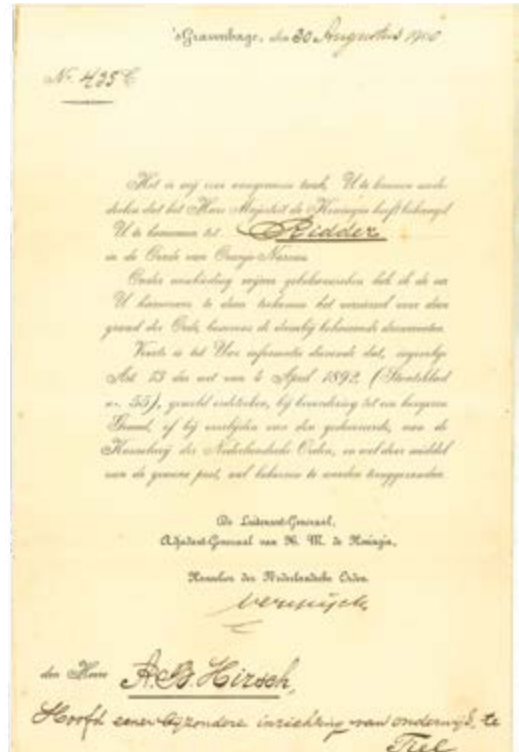 'sGravenhage, den 30 Augustus 1900
No. 425 C
Het is mij eene aangename taak, U te kunnen mede-
deelen dat het Hare Majesteit de Koningin heeft behaagd
U te benoemen tot Ridder
in de Orde van Oranje-Nassau.
Onder aanbieding mijner gelukwenschen heb ik de eer
U hiernevens te doen toekomen het versiersel van dien
graad der Orde, benevens de daarbij behoorende documenten.
Voorts is tot Uwe informatie dienende dat, ingevolge
Art. 13 der wet van 4 April 1892, (Staatsblad
no. 55), gemeld eereteeken, bij bevordering tot een hoogeren
Graad, of bij overlijden van den gedecoreerde, aan de
Kanselarij der Nederlandsche Orden, en wel door middel
van de gewone post, zal behooren te worden teruggezonden.
De Luitenant-Generaal,
Adjudant-Generaal van H. M. de Koningin,
Kanselier der Nederlandsche Orden
den Heere A. B. Hirsch,
Hoofd eener bijzondere inrichting van onderwijs, te
Tiel